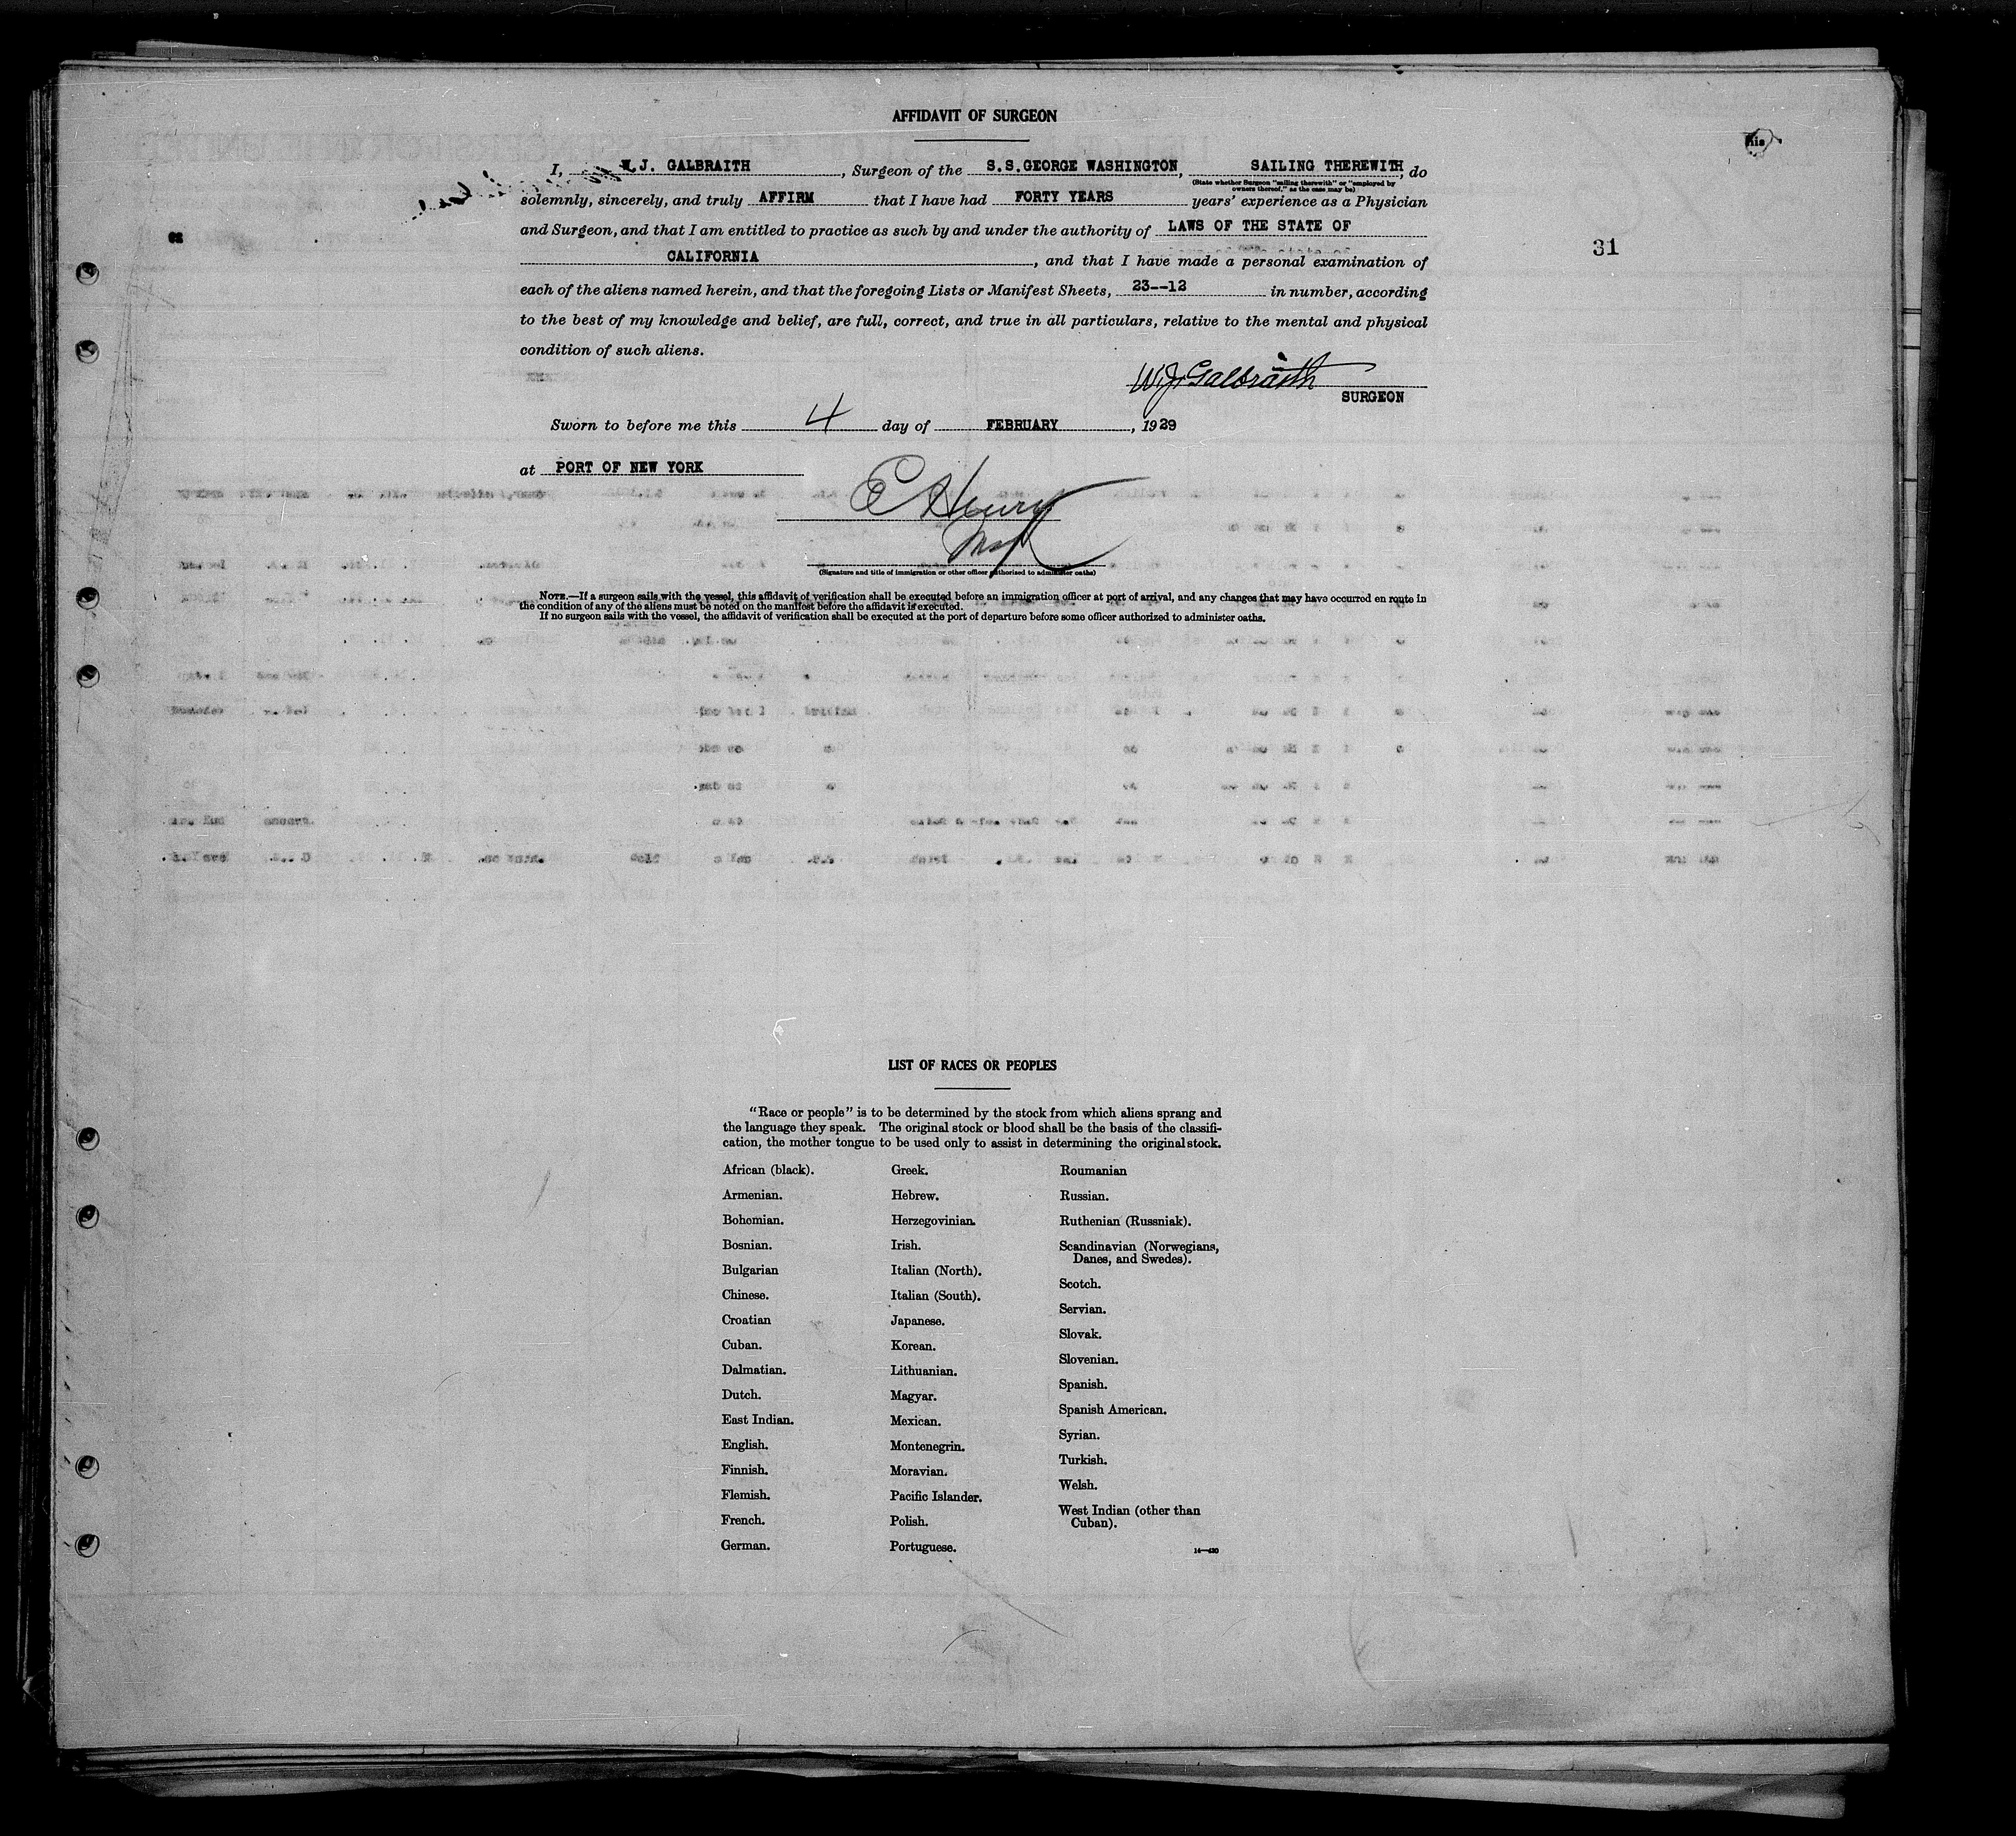 AFFIDAVIT OF SURGEON
I, W.J. GALBRAITH, Surgeon of the S.S.GEORGE WASHINGTON, SAILING THEREWITH, do
(State whether Surgeon "sailing therewith" or "employed by
owners thereof," as the case may be)
solemnly, sincerely, and truly AFFIRM that I have had FORTY YEARS years' experience as a Physician
and Surgeon, and that I am entitled to practice as such by and under the authority of LAWS OF THE STATE OF
CALIFORNIA, and that I have made a personal examination of
each of the aliens named herein, and that the foregoing Lists or Manifest Sheets, 23--12 in number, according
to the best of my knowledge and belief, are full, correct, and true in all particulars, relative to the mental and physical
condition of such aliens.
31
W.J. Galbraith
SURGEON
Sworn to before me this 4 day of FEBRUARY, 1929
at PORT OF NEW YORK
C Henry
(Signature and title of immigration or other officer authorized to administer oaths)
NOTE.—If a surgeon sails with the vessel, this affidavit of verification shall be executed before an immigration officer at port of arrival, and any changes that may have occurred en route in
the condition of any of the aliens must be noted on the manifest before the affidavit is executed.
If no surgeon sails with the vessel, the affidavit of verification shall be executed at the port of departure before some officer authorized to administer oaths.
LIST OF RACES OR PEOPLES
"Race or people" is to be determined by the stock from which aliens sprang and
the language they speak. The original stock or blood shall be the basis of the classifi-
cation, the mother tongue to be used only to assist in determining the original stock.
African (black).
Armenian.
Bohemian.
Bosnian.
Bulgarian
Chinese.
Croatian
Cuban.
Dalmatian.
Dutch.
East Indian.
English.
Finnish.
Flemish.
French.
German.
Greek.
Hebrew.
Herzegovinian.
Irish.
Italian (North).
Italian (South).
Japanese.
Korean.
Lithuanian.
Magyar.
Mexican.
Montenegrin.
Moravian.
Pacific Islander.
Polish.
Portuguese.
Roumanian
Russian.
Ruthenian (Russniak).
Scandinavian (Norwegians,
Danes, and Swedes).
Scotch.
Servian.
Slovak.
Slovenian.
Spanish.
Spanish American.
Syrian.
Turkish.
Welsh.
West Indian (other than
Cuban).
14—430